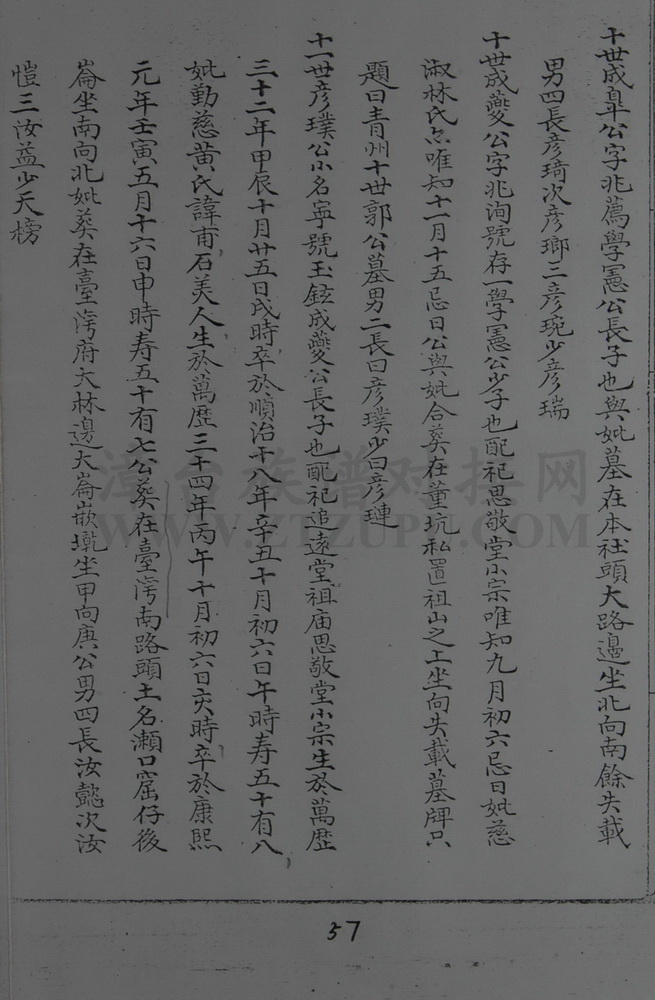 十世成皐公字兆薦學憲公長子也與妣墓在本社頭大路邊坐北向南餘失載
男四長彥琦次彥瑯三彥琬少彥瑞
十世成夔公字兆洵號存一學憲公少子也配祀思敬堂小宗唯知九月初六忌日妣慈
淑林氏亦唯知十一月十五忌日公與妣合葬在董坑私置祖山之上坐向失載墓牌只
題曰青州十世郭公墓男二長曰彥璞少曰彥璉
十一世彥璞公小名寧號玉鉉成夔公長子也配祀追遠堂祖庙思敬堂小宗生於萬歷
三十二年甲辰十月廿五日戌時卒於順治十八年辛丑十月初六日午時寿五十有八
妣勤慈黃氏諱甫石美人生於萬歷三十四年丙午十月初六日亥時卒於康熙
元年壬寅五月十六日申時寿五十有七公葬在臺湾南路頭土名瀬口窟仔後
崙坐南向北妣葬在臺湾府大林邊大崙嵌墘坐甲向庚公男四長汝懿次汝
愷三汝益少天榜
漳台族谱对接网
WWW.ZTZUPU.COM
57